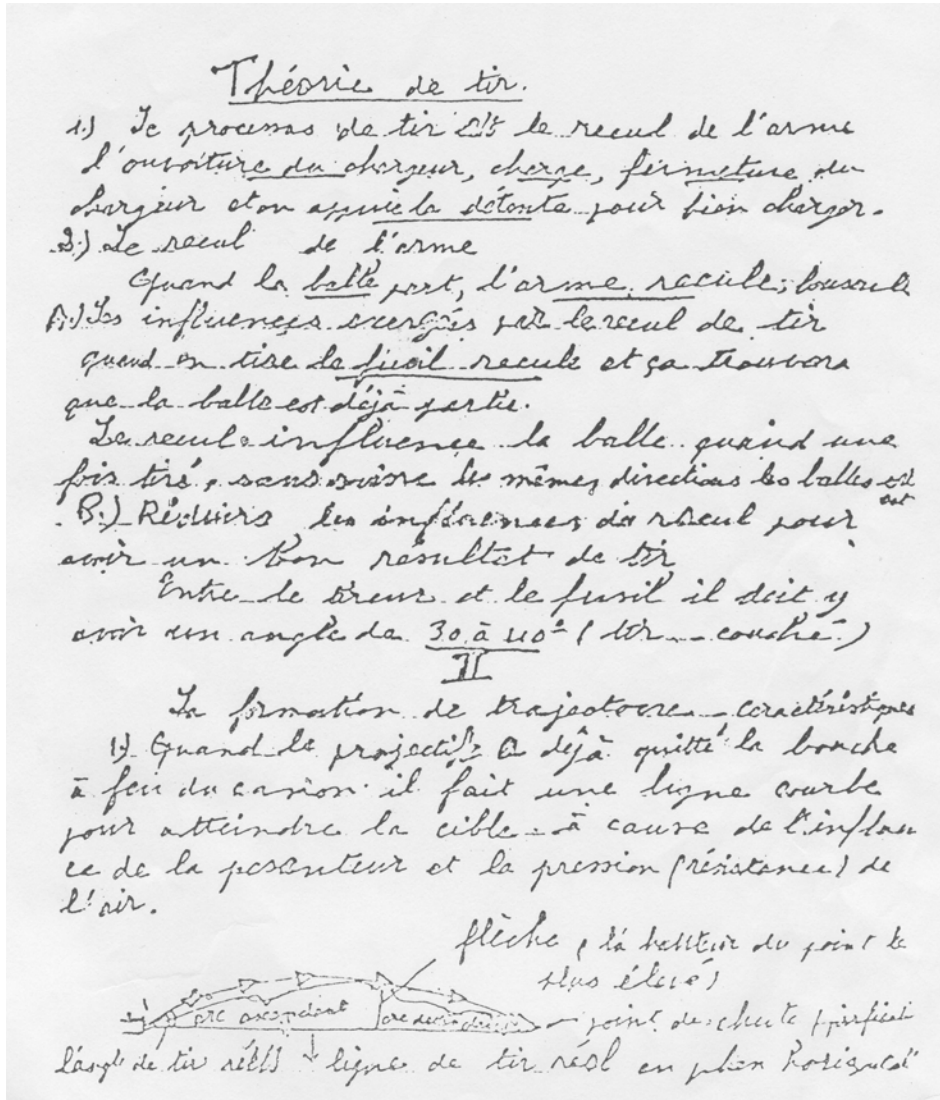 Théorie de tir.
1.) Le processus de tir est le recul de l'arme
l'ouverture du chargeur, charge, fermeture du
chargeur et on appuie la détente pour bien charger.
2.) Le recul de l'arme
Quand la balle part, l'arme recule, bouscule
A.) Les influences exergés par le recul de tir
quand on tire le fusil recule et ça trouvera
que la balle est déjà partie.
Le recule influence la balle quand une
fois tiré, sans suivre les mêmes directions les balles
B.) Réduire les influences du recul pour
avoir un bon résultat de tir
Entre le tireur et le fusil il doit y
avoir un angle de 30 à 40° (tir couché.)
II
La formation de trajectoire caractéristiques
1.) Quand le projectile a déjà quitté la bouche
à feu du canon il fait une ligne courbe
pour atteindre la cible à cause de l'influen
ce de la pesenteur et la pression (résistance) de
l'air.
flèche, la hauteur du point le
plus élevé)
arc ascendent arc descendent point de chute
l'angle de tir réel ligne de tir réel en plan horizontal